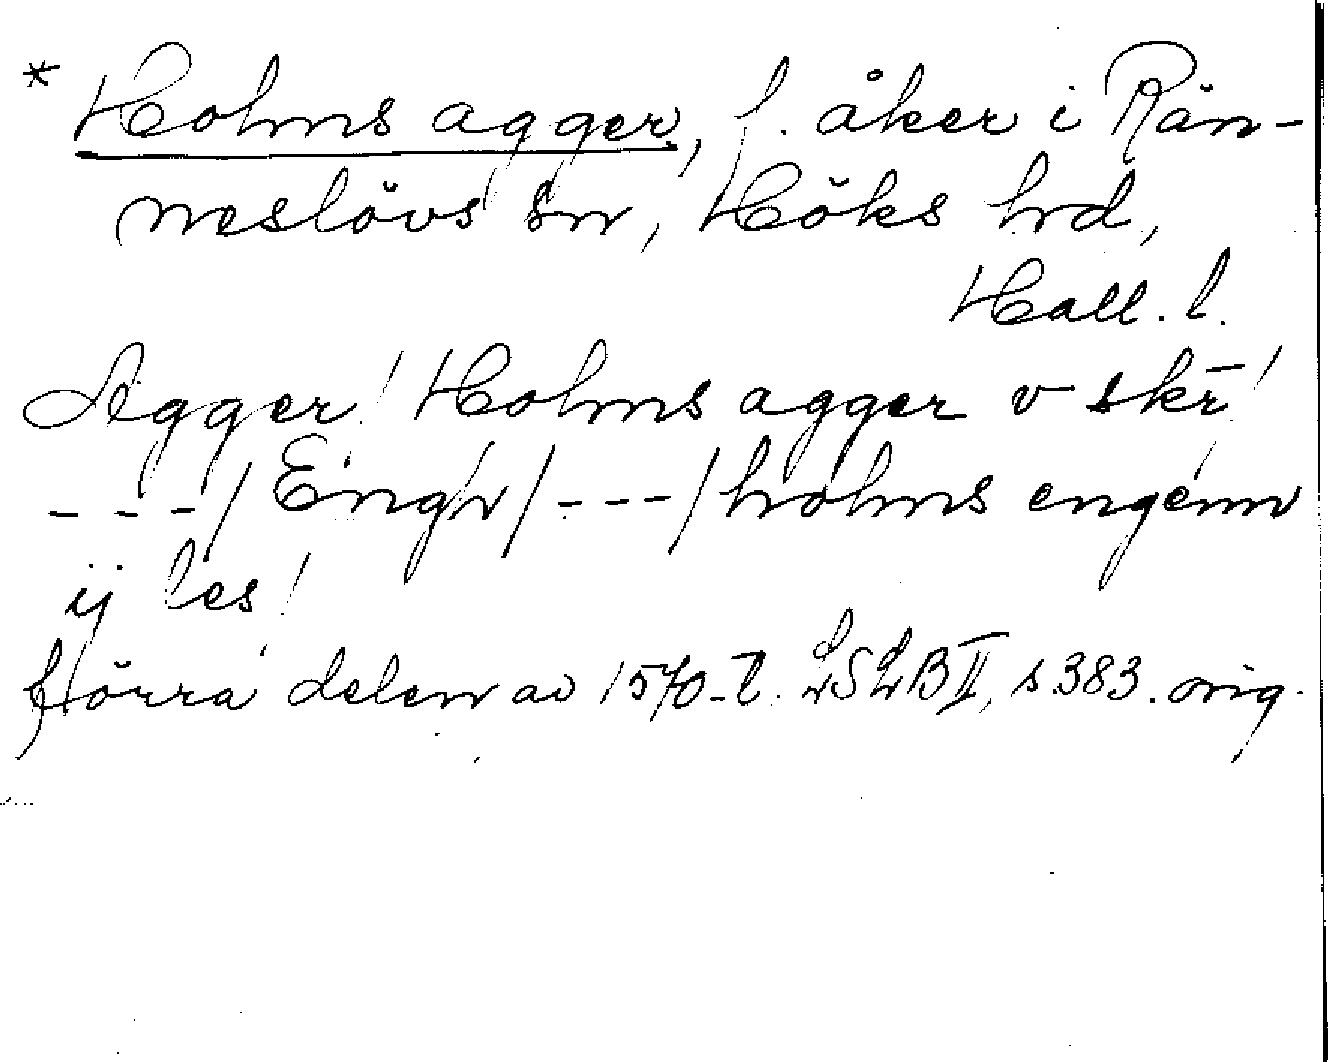 * Holms agger, f. åker i Rän-
neslövs sn, Höks hd,
Hall. l.
Agger! Holms agger v skr̄!
---/Engh/---/holms engenn
ij les!
förra delen av 1570-t. LSLB II, s. 383. orig.